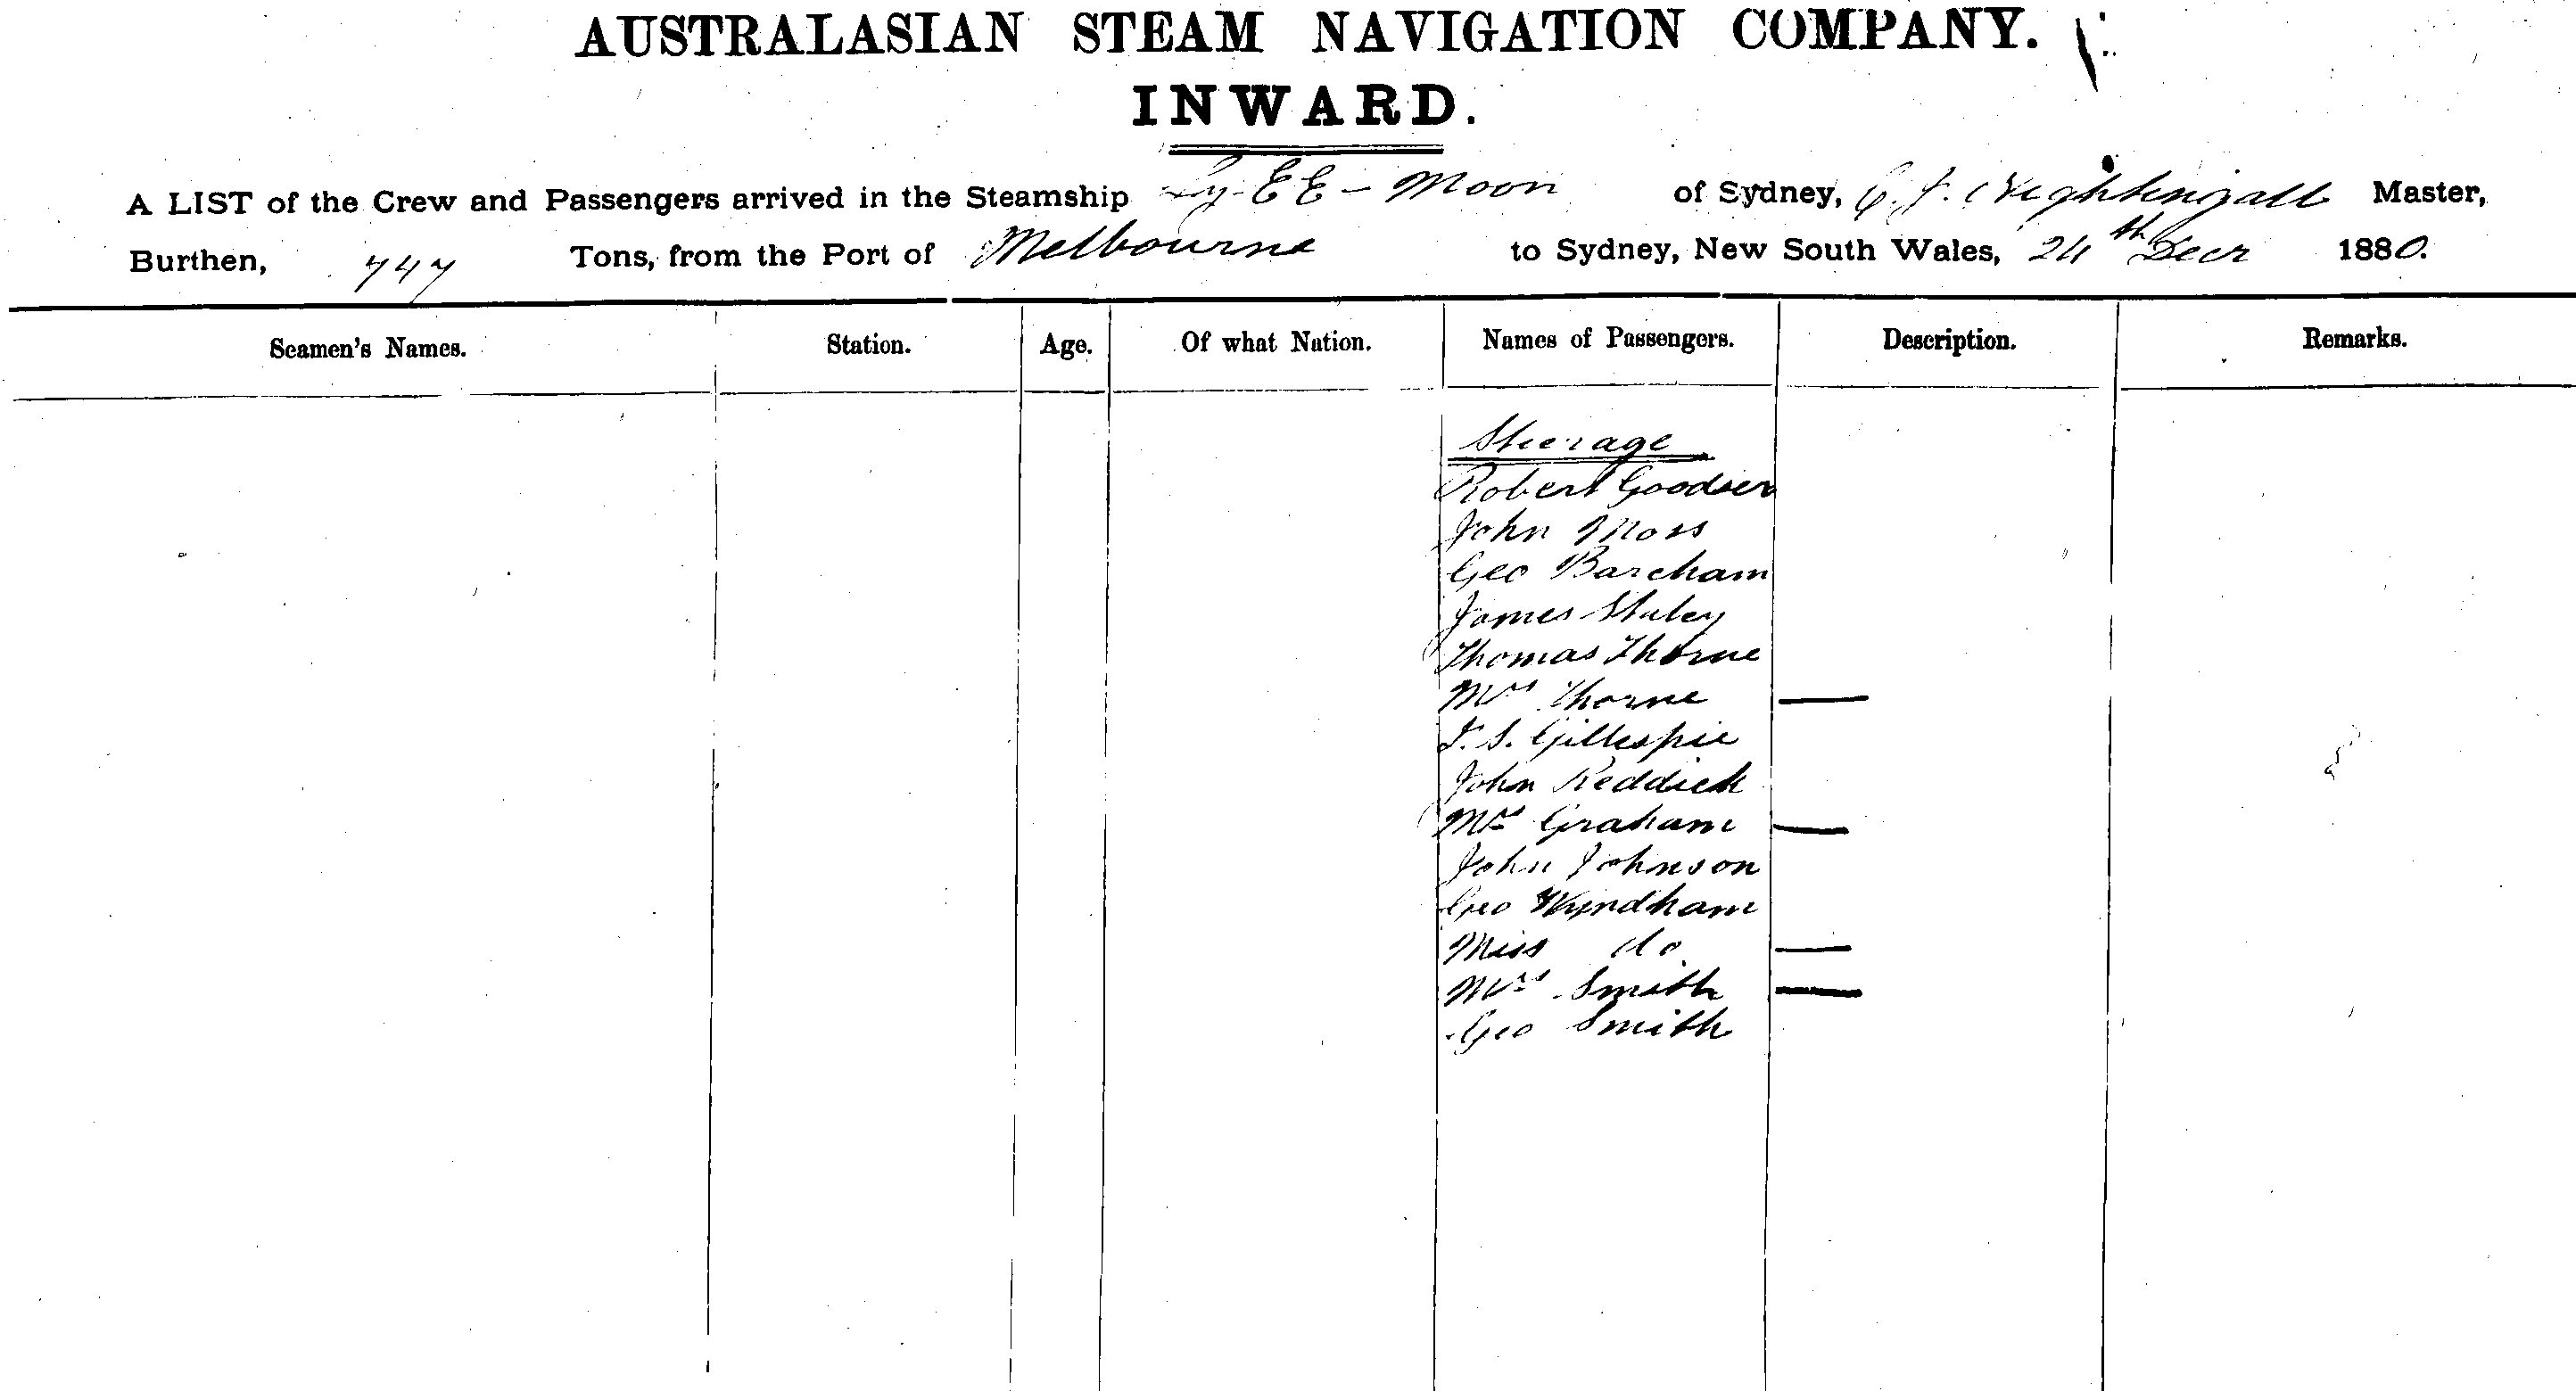 AUSTRALASIAN STEAM NAVIGATION COMPANY.
INWARD.
A LIST of the Crew and Passengers arrived in the Steamship Ly-EE-Moon of Sydney, Nightingall Master,
Burthen, 747 Tons, from the Port of Melbourne to Sydney, New South Wales, 24th Decr 1880.
Seamen's Names. Station. Age. Of what Nation. Names of Passengers. Description. Remarks.
Steerage
Robert
John Moss
Geo Barcham
James
Thomas Thorne
Mrs Thorne —
Gillespie
John Reddick
Graham —
John Johnson
Geo Wyndham
Miss do —
Mrs Smith —
Geo Smith